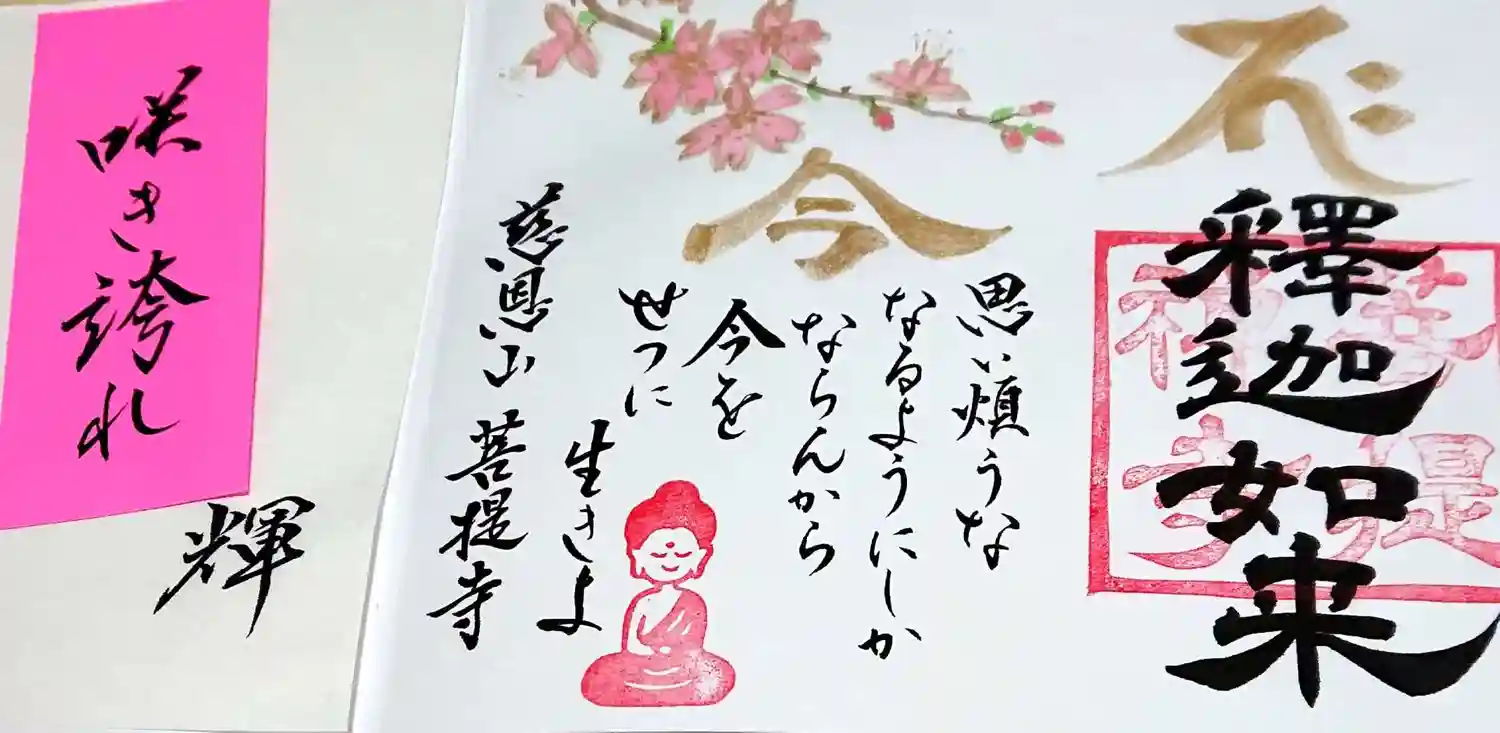 釋迦如来
今
思い煩うな
なるようにしか
ならんから
今を
せつに
生きよ
慈恩山 菩提寺
咲き誇れ
輝